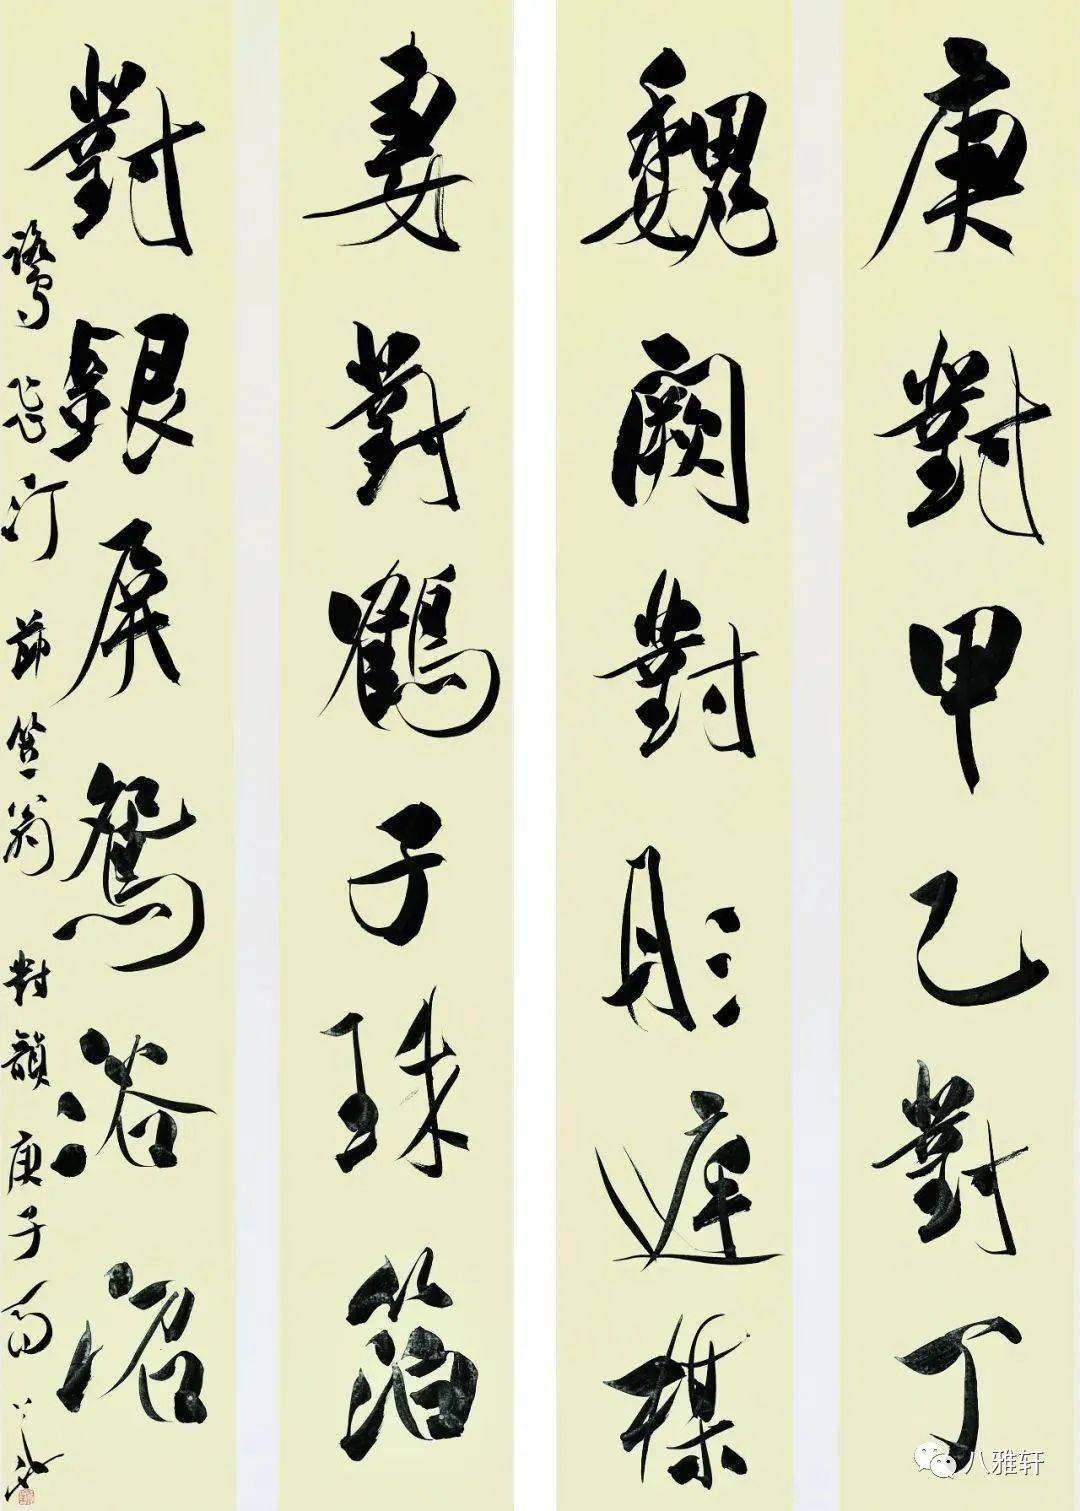 庚對甲乙對丁
魏闕對彤庭楳
妻對鶴子珠箔
對銀屏鴛浴沼
鷺飛汀 節笠翁對韻 庚子
八雅轩